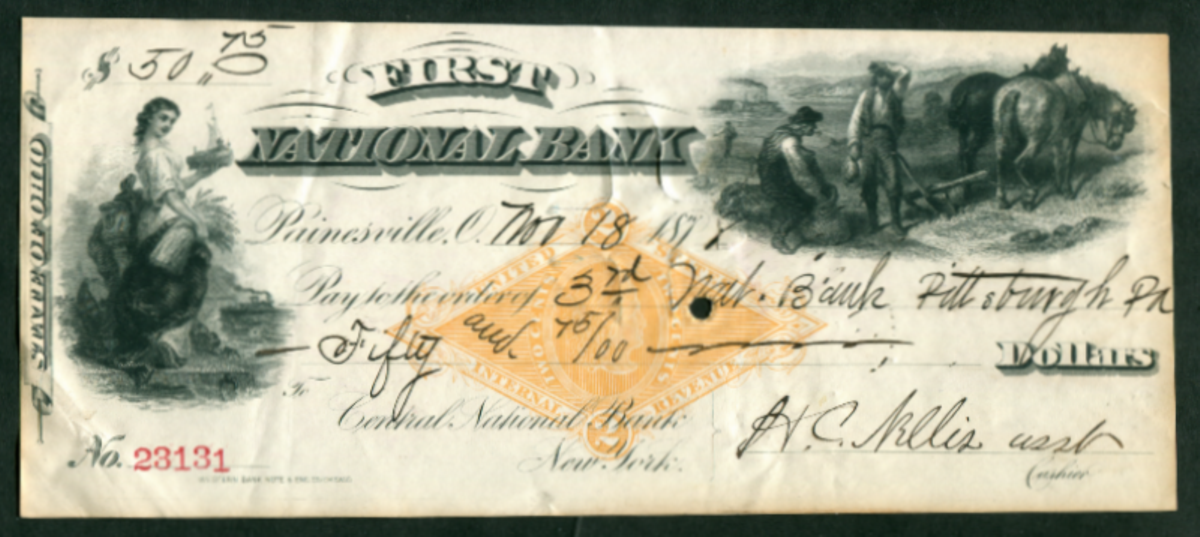 $ 50 75/0
FIRST
NATIONAL BANK
Painesville, O. Nov 18 187
Pay to the order of 3rd Nat. Bank Pittsburgh Pa
Fifty and 75/100 Dollars
To
Central National Bank
New York.
H.C. Nellis asst
Cashier
No. 23131
UNITED STATES
INTERNAL REVENUE
2